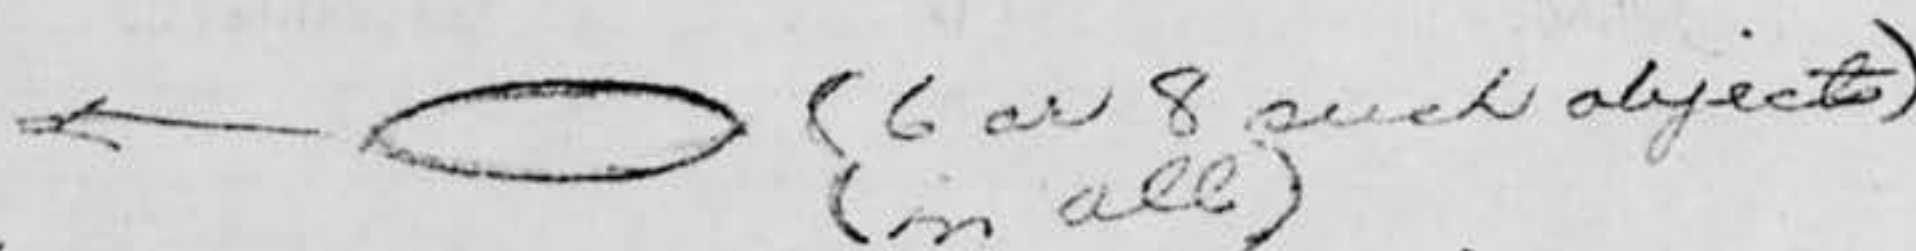 (6 or 8 such objects)
(in all)